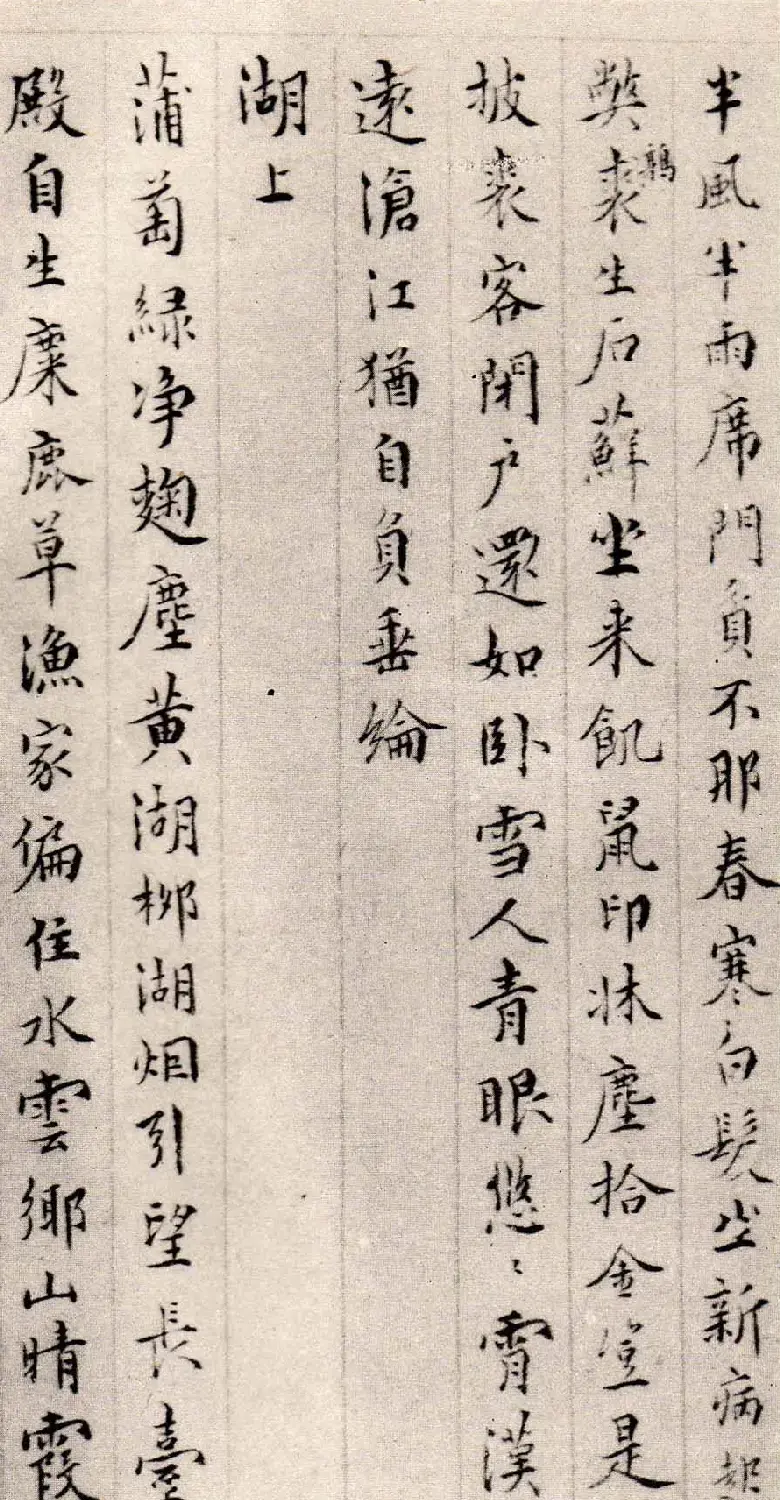 半風半雨席門貧不那春寒白髮新病起
獘裘生石蘚坐来飢鼠印牀塵拾金豈是
鶉
披裘客閉户還如卧雪人青眼悠〻霄漢
遠滄江猶自負垂綸
湖上
蒲萄緑净麹塵黄湖柳湖烟引望長臺
殿自生麋鹿草漁家偏住水雲鄉山晴霞